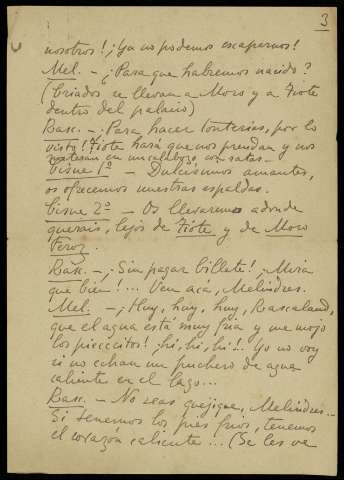 3
nosotros! ¡Ya no podemos escaparnos!
Mel. - ¿Para qué habremos nacido?
(Criados se llevan a Moro y a Fiote
dentro del palacio)
Rasc. - ¡Para hacer tonterías, por lo
visto! Fiote hará que nos prendan y nos
metan en un calabozo, con ratas.
Cisne 1º - Dulcísimos amantes,
os ofrecemos nuestras espaldas.
Cisne 2º - Os llevaremos adonde
querais, lejos de Fiote y de Moro
Feroz.
Rasc. - ¡Sin pagar billete! ¡Mira
que bien!... Ven acá, Melindres.
Mel. - ¡Huy, huy, huy, Rascaland,
que el agua está muy fría y me mojo
los piececitos! ¡hi, hi, hi!.. Yo no voy
si no echan un puchero de agua
caliente en el lago...
Rasc. - No seas quejique, Melindres...
Si tenemos los pies fríos, tenemos
el corazón caliente... (Se les ve